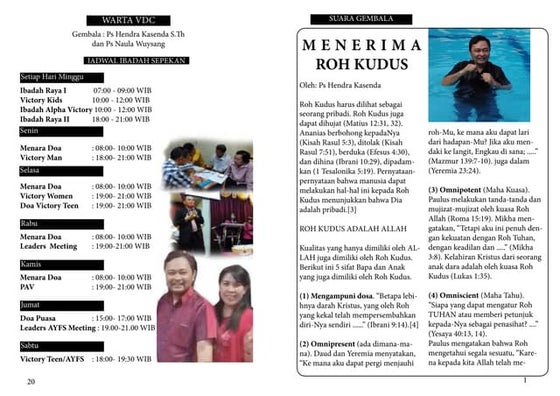 WARTA VDC
Gembala : Ps Hendra Kasenda S.Th
dan Ps Naula Wuysang
JADWAL IBADAH SEPEKAN
Setiap Hari Minggu
Ibadah Raya I 07:00 - 09:00 WIB
Victory Kids 10:00 - 12:00 WIB
Ibadah Alpha Victory 10:00 - 12:00 WIB
Ibadah Raya II 18:00 - 21:00 WIB
Senin
Menara Doa : 08:00- 10:00 WIB
Victory Man : 18:00- 21:00 WIB
Selasa
Menara Doa : 08:00- 10:00 WIB
Victory Women : 19:00- 21:00 WIB
Doa Victory Teen : 19:00- 21:00 WIB
Rabu
Menara Doa : 08:00- 10:00 WIB
Leaders Meeting : 19:00-21:00 WIB
Kamis
Menara Doa : 08:00- 10:00 WIB
PAV : 19:00- 21:00 WIB
Jumat
Doa Puasa : 15:00- 17:00 WIB
Leaders AYFS Meeting : 19:00-21.00 WIB
Sabtu
Victory Teen/AYFS : 18:00- 19:30 WIB
20
SUARA GEMBALA
MENERIMA
ROH KUDUS
Oleh: Ps Hendra Kasenda
Roh Kudus harus dilihat sebagai
seorang pribadi. Roh Kudus juga
dapat dihujat (Matius 12:31, 32).
Ananias berbohong kepadaNya
(Kisah Rasul 5:3), ditolak (Kisah
Rasul 7:51), berduka (Efesus 4:30),
dan dihina (Ibrani 10:29), dipadam-
kan (1 Tesalonika 5:19). Pernyataan-
pernyataan bahwa manusia dapat
melakukan hal-hal ini kepada Roh
Kudus menunjukkan bahwa Dia
adalah pribadi.[3]
ROH KUDUS ADALAH ALLAH
Kualitas yang hanya dimiliki oleh AL-
LAH juga dimiliki oleh Roh Kudus.
Berikut ini 5 sifat Bapa dan Anak
yang juga dimiliki oleh Roh Kudus.
(1) Mengampuni dosa. “Betapa lebi-
hnya darah Kristus, yang oleh Roh
yang kekal telah mempersembahkan
diri-Nya sendiri ......” (Ibrani 9:14).[4]
(2) Omnipresent (ada dimana-ma-
na). Daud dan Yeremia menyatakan,
“Ke mana aku dapat pergi menjauhi
roh-Mu, ke mana aku dapat lari
dari hadapan-Mu? Jika aku men-
daki ke langit, Engkau di sana; .....”
(Mazmur 139:7-10). juga dalam
(Yeremia 23:24).
(3) Omnipotent (Maha Kuasa).
Paulus melakukan tanda-tanda dan
mujizat-mujizat oleh kuasa Roh
Allah (Roma 15:19). Mikha men-
gatakan, “Tetapi aku ini penuh den-
gan kekuatan dengan Roh Tuhan,
dengan keadilan dan .....” (Mikha
3:8). Kelahiran Kristus dari seorang
anak dara adalah oleh kuasa Roh
Kudus (Lukas 1:35).
(4) Omniscient (Maha Tahu).
“Siapa yang dapat mengatur Roh
TUHAN atau memberi petunjuk
kepada-Nya sebagai penasihat? ....”
(Yesaya 40:13, 14).
Paulus mengatakan bahwa Roh
mengetahui segala sesuatu, “Karе-
na kepada kita Allah telah me-
1